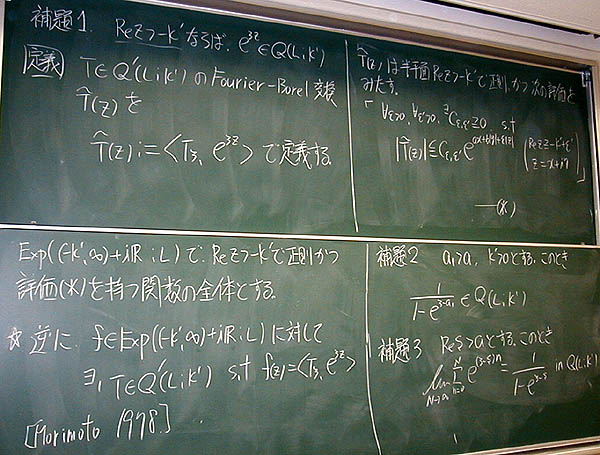 補題1. Re z > -k' ならば, e^{ζz} ∈ Q(L;k')
定義 T ∈ Q'(L;k') の Fourier-Borel 変換
T̂(z) を
T̂(z) := <T_ζ, e^{ζz}> で定義する.
T̂(z) は半平面 Re z > -k' で正則, かつ次の評価を
みたす.
「 ∀ε>0, ∀ε'>0, ∃C_{ε,ε'} ≧ 0 s.t
|T̂(z)| ≦ C_{ε,ε'} e^{ax+b|y|+ε|z|} (Re z ≧ -k'+ε'
z = x+iy) 」
—(*)
Exp((-k',∞)+iR : L) で, Re z > -k' で正則かつ
評価(*)を持つ関数の全体とする.
☆ 逆に, f ∈ Exp((-k',∞)+iR : L) に対して
∃1 T ∈ Q'(L;k') s.t f(z) = <T_ζ, e^{ζz}>
[Morimoto 1978.]
補題2 a₁>a, k'>0 とする. このとき
1/(1-e^{ζ-a₁}) ∈ Q(L;k')
補題3 Re s > a とする. このとき
lim_{N→∞} Σ_{n=0}^{N} e^{(ζ-s)n} = 1/(1-e^{ζ-s}) in Q(L;k')